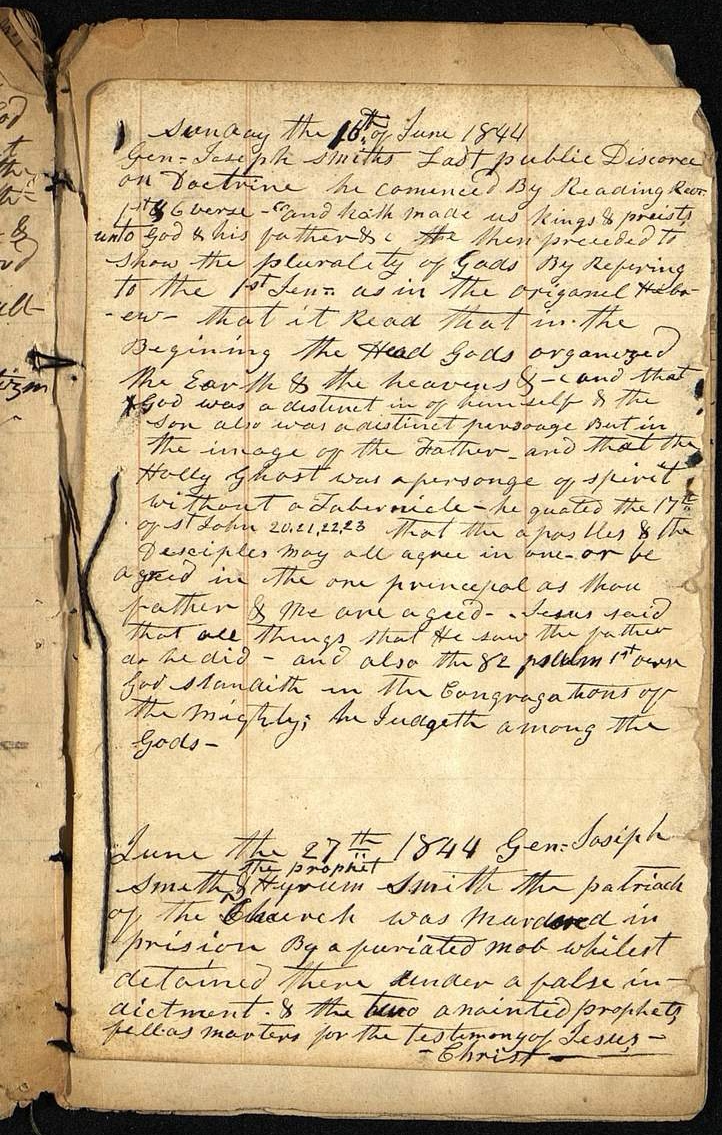 Sunday the 16th of June 1844
Gen- Joseph Smiths Last public Discorce
on Doctrine he comenced By Reading Rev.
1st & 6 verse - "and hath made us kings & preists
unto God & his father & c He then preceded to
Show the plurality of Gods By Refering
to the 1st Jen- as in the origanel Hebr-
-ew- that it Read that in the
Begining the Head Gods organized
the Earth & the heavens & -c and that
God was a destinct in of himself & the
son also was a destinct personage But in
the image of the Father - and that the
Holly Ghost was a personge of spirit
without a Tabernicle - he quated the 17th
of st John 20.21.22.23 that the apostles & the
Desciples may all agree in one - or be
agreed in the one principal as thou
father & Me are ageed - Jesus said
that all things that He saw the father
do he did - and also the 82 pslum 1st verse
God standith in the Congragations of
the mighty; he Judgeth among the
Gods -
June the 27th 1844 Gen= Josiph
the prophit
Smith & Hyrum Smith the patriach
of the Church was murdered in
prision By a puriated mob whilest
detained there under a false in-
dictment. & the two anointed prophets
fell as marters for the testimony of Jesus -
- Christ -